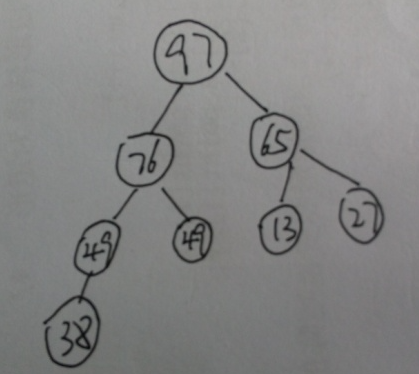 97
76 65
49 49 13 27
38